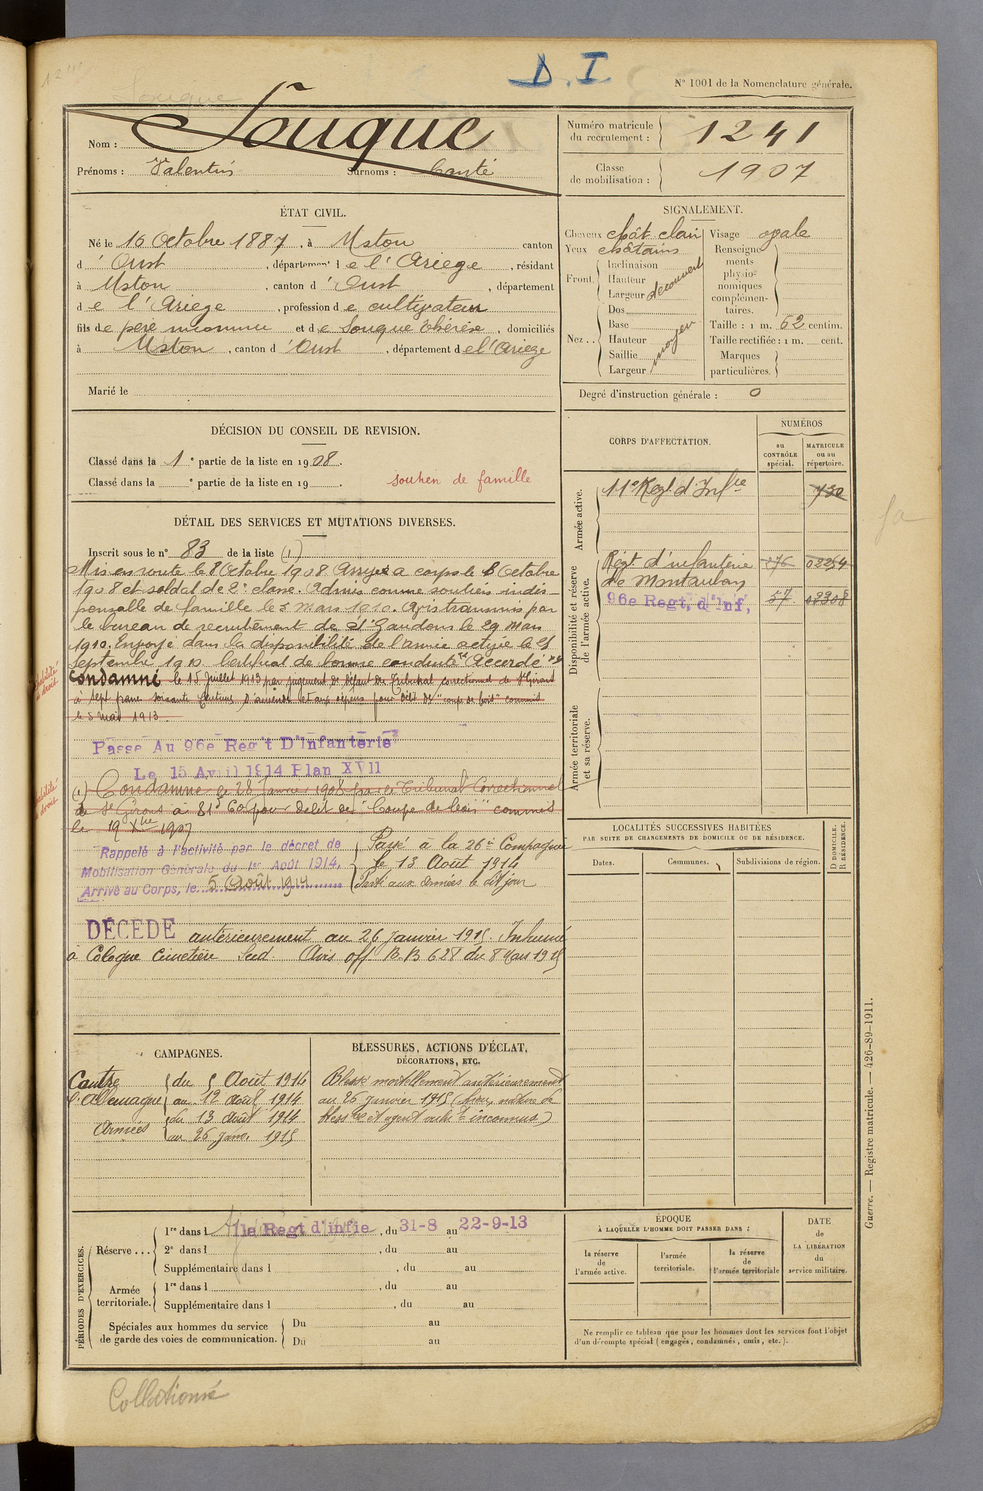 D. I
N° 1001 de la Nomenclature générale.
Nom : Souque
Prénoms : Valentin Surnoms :
Numéro matricule du recrutement : 1241
Classe de mobilisation : 1907
ÉTAT CIVIL.
Né le 16 Octobre 1887, à Ustou canton
d'Oust, département de l'Ariège, résidant
à Ustou, canton d'Oust, département
de l'Ariège, profession de cultivateur
fils de père inconnu et de Souque Thérèse, domiciliés
à Ustou, canton d'Oust, département de l'Ariège
Marié le
SIGNALEMENT.
Cheveux chât clair
Yeux châtains
Front. Inclinaison Hauteur Largeur découvert
Nez.. Dos Base Hauteur Saillie Largeur moyen
Visage ovale
Renseignements physionomiques complémentaires.
Taille : 1 m. 62 centim.
Taille rectifiée : 1 m. cent.
Marques particulières.
Degré d'instruction générale : 0
DÉCISION DU CONSEIL DE REVISION.
Classé dans la 1e partie de la liste en 1908.
Classé dans la e partie de la liste en 19 .
soutien de famille
CORPS D'AFFECTATION.
NUMÉROS
au CONTRÔLE spécial.
MATRICULE ou au répertoire.
Armée active.
11e Régt d'Infie 730
Disponibilité et réserve de l'armée active.
Régt d'infanterie 076 02254
de Montauban
96e Regt, d'Inf, 57 02308
Armée territoriale et sa réserve.
DÉTAIL DES SERVICES ET MUTATIONS DIVERSES.
Inscrit sous le n° 83 de la liste (1)
Mis en route le 8 Octobre 1908 Arrivé au corps le 8 Octobre
1908 et soldat de 2e classe. Admis comme soutien indis-
pensable de famille le 5 mars 1910. Avis transmis par
le bureau de recrutement de St Gaudens le 29 mars
1910. Envoyé dans la disponibilité de l'armée active le 25
septembre 1910. Certificat de bonne conduite "Accordé"
Condamné le 15 Juillet 1913 par jugement de défaut du Tribunal correctionnel de St Girons
à sept francs soixante centimes d'amende et aux dépens pour délit de "coupe de bois" commis
le 5 mai 1913.
Passé Au 96e Reg't D'Infanterie
Le 15 Avril 1914 Plan XVII
(1) Condamné le 28 Janvier 1908 par le Tribunal Correctionnel
de St Girons à 81f 60 pour délit de "Coupe de bois" commis
le 19 Xbre 1907
Rappelé à l'activité par le décret de
Mobilisation Générale du 1er Août 1914.
Arrivé au Corps, le 5 Août 1914
Passé à la 26e Compagnie
le 13 Août 1914
Passé aux armées le dit jour
DÉCÉDÉ antérieurement au 26 Janvier 1915. Inhumé
à Cologne cimetière Sud. Avis off B.B 628 du 8 Mars 1915
LOCALITÉS SUCCESSIVES HABITÉES
PAR SUITE DE CHANGEMENTS DE DOMICILE OU DE RÉSIDENCE.
Dates. Communes. Subdivisions de région.
D DOMICILE.
R RÉSIDENCE.
CAMPAGNES.
Contre l'Allemagne du 5 Août 1914
au 12 Août 1914
Armées du 13 Août 1914
au 26 Janv. 1915
BLESSURES, ACTIONS D'ÉCLAT,
DÉCORATIONS, ETC.
Blessé mortellement antérieurement
au 26 janvier 1915 (lieu, nature de
bless re et agent inconnus)
PÉRIODES D'EXERCICES.
Réserve... 1re dans l 11e Regt d'infie, du 31-8 au 22-9-13
2e dans l , du au
Supplémentaire dans l , du au
Armée territoriale. 1re dans l , du au
Supplémentaire dans l , du au
Spéciales aux hommes du service
de garde des voies de communication. Du au
Du au
ÉPOQUE
À LAQUELLE L'HOMME DOIT PASSER DANS :
la réserve de l'armée active.
l'armée territoriale.
la réserve de l'armée territoriale
DATE de LA LIBÉRATION du service militaire.
Ne remplir ce tableau que pour les hommes dont les services font l'objet
d'un décompte spécial (engagés, condamnés, omis, etc.).
Guerre. — Registre matricule. — 426-89-1911.
Collationné